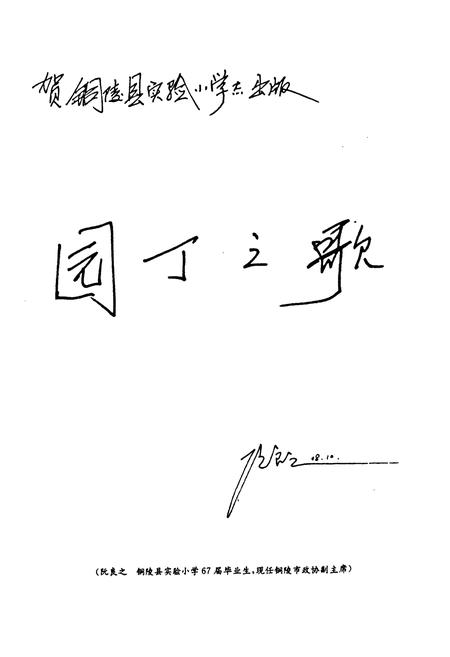 贺铜陵县实验小学志出版
园丁之歌
阮良之 08.10.
(阮良之 铜陵县实验小学67届毕业生,现任铜陵市政协副主席)